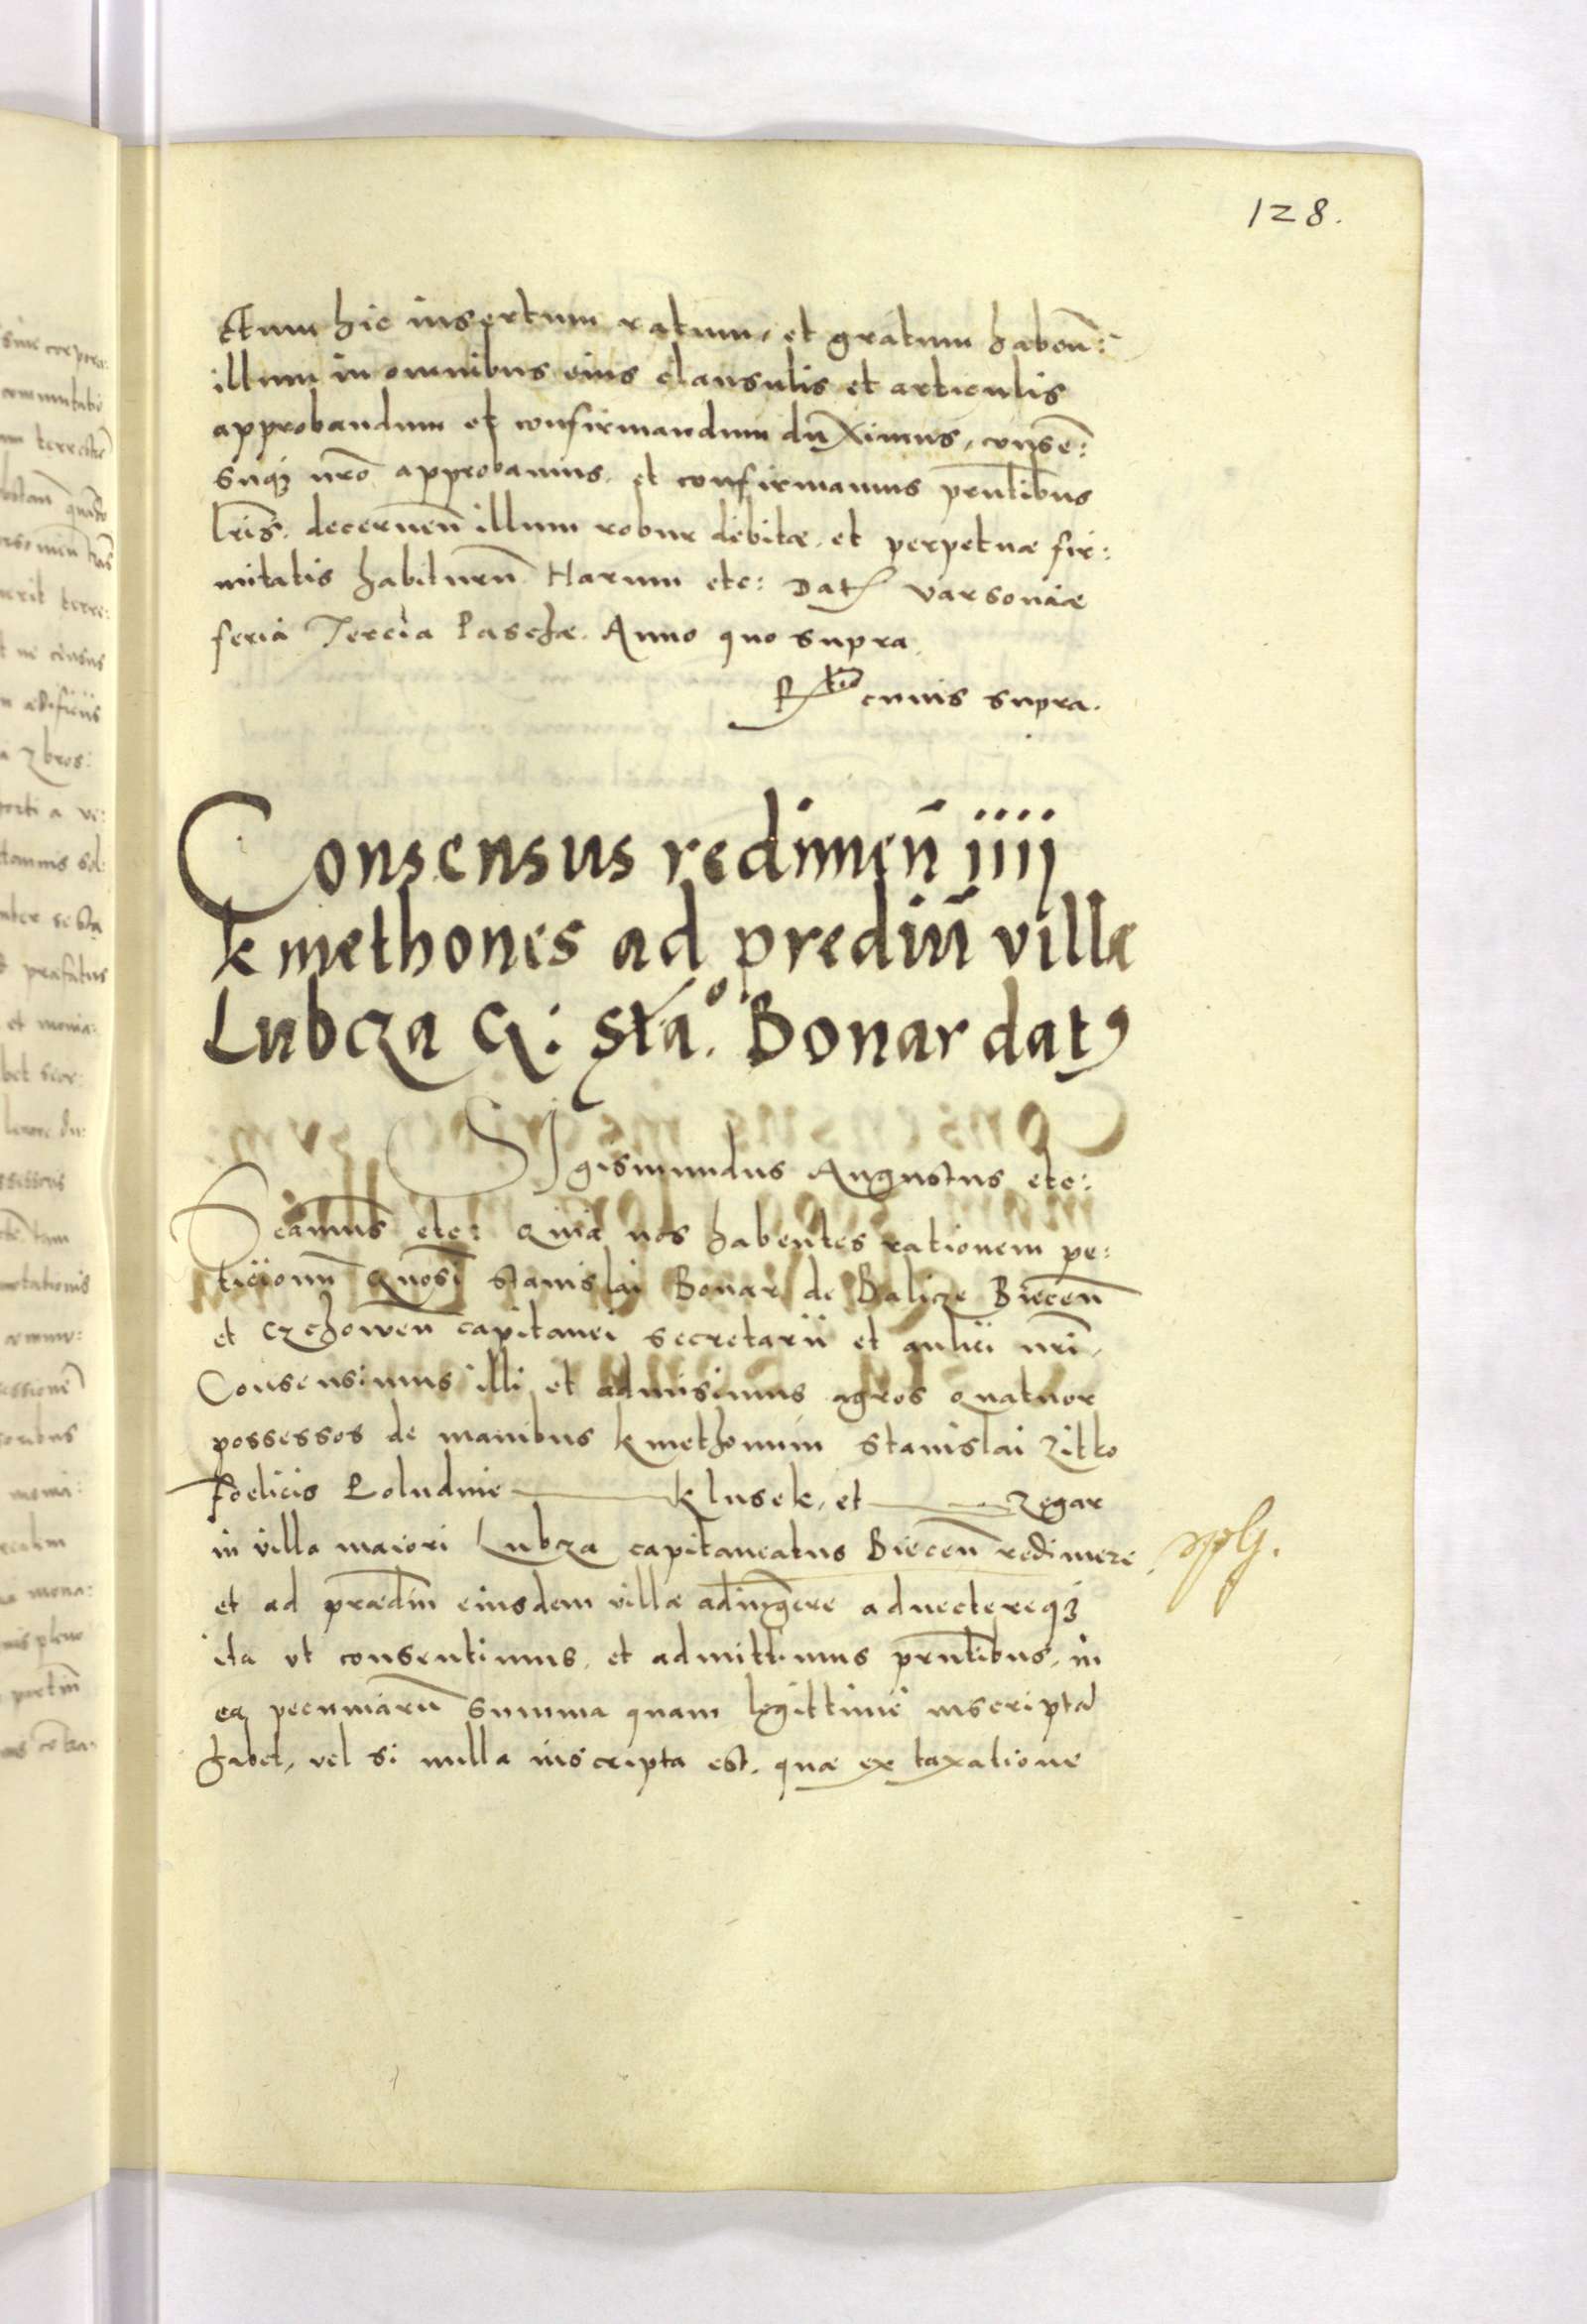 128.
ctum hic insertum ratum, et gratum haben̄:
illum in omnibus eius clausulis et articulis
approbandum et confirmandum duximus, consen̄:
suq3 nr̄o approbamus et confirmamus prn̄tibus
lr̄is. decernen̄ illum robur debitæ et perpetuæ fir:
mitatis habiturū Harum etc: Dat Varsoniæ
feria Tercia Paschæ. Anno quo supra
cuius supra.
Consensus redimen̄ iiij
kmethones ad prediū villæ
Lubcza G: Sta.º Bonar datꝰ
SIgismundus Augustus etc:
Significamus etc: Quia nos habentes rationem pe:
ticionū Gn̄osi Stanislai Bonar de Balicze Biecen̄
et Czchowen̄ capitanei secretarii et aulici nr̄i,
Consensimus illi et admisimus agros quatuor
possessos de manibus kmethonum Stanislai Zitko
Foelicis Poludnie — Klusek, et — Zegar
in villa maiori Lubcza capitaneatus Biecen̄ redimere
et ad prædiū eiusdem villæ adiungere aduectereq3
ita vt consentimus, et admittimus prn̄tibus, in
ea pecuniarū summa quam legittime inscriptā
habet, vel si nulla inscripta est, quæ ex taxatione